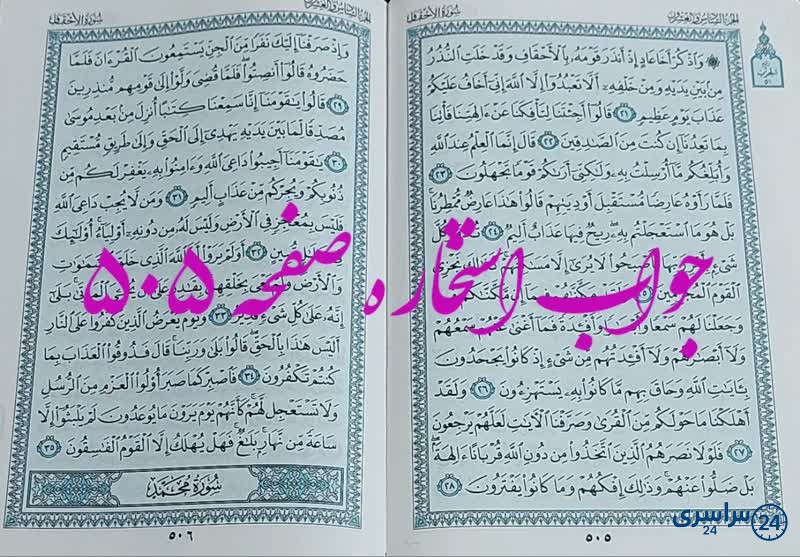 سُورَةُ الأَحْقَافِ
الجزء السادس والعشرون
۞ وَاذْكُرْ أَخَا عَادٍ إِذْ أَنذَرَ قَوْمَهُ بِالْأَحْقَافِ وَقَدْ خَلَتِ النُّذُرُ
مِنْ بَيْنِ يَدَيْهِ وَمِنْ خَلْفِهِ أَلَّا تَعْبُدُوا إِلَّا اللَّهَ إِنِّي أَخَافُ عَلَيْكُمْ
عَذَابَ يَوْمٍ عَظِيمٍ ٢١ قَالُوا أَجِئْتَنَا لِتَأْفِكَنَا عَنْ آلِهَتِنَا فَأْتِنَا
بِمَا تَعِدُنَا إِنْ كُنتَ مِنَ الصَّادِقِينَ ٢٢ قَالَ إِنَّمَا الْعِلْمُ عِندَ اللَّهِ
وَأُبَلِّغُكُم مَّا أُرْسِلْتُ بِهِ وَلَكِنِّي أَرَاكُمْ قَوْمًا تَجْهَلُونَ ٢٣
فَلَمَّا رَأَوْهُ عَارِضًا مُّسْتَقْبِلَ أَوْدِيَتِهِمْ قَالُوا هَذَا عَارِضٌ مُّمْطِرُنَا
بَلْ هُوَ مَا اسْتَعْجَلْتُم بِهِ رِيحٌ فِيهَا عَذَابٌ أَلِيمٌ ٢٤
الْقَوْمَ
وَجَعَلْنَا لَهُمْ سَمْعًا فَمَا أَغْنَى عَنْهُمْ سَمْعُهُمْ
وَلَا أَبْصَارُهُمْ وَلَا أَفْئِدَتُهُم مِّن شَيْءٍ إِذْ كَانُوا يَجْحَدُونَ
بِآيَاتِ اللَّهِ وَحَاقَ بِهِم مَّا كَانُوا بِهِ يَسْتَهْزِءُونَ ٢٦ وَلَقَدْ
أَهْلَكْنَا مَا حَوْلَكُم مِّنَ الْقُرَى وَصَرَّفْنَا الْآيَاتِ لَعَلَّهُمْ يَرْجِعُونَ
٢٧ فَلَوْلَا نَصَرَهُمُ الَّذِينَ اتَّخَذُوا مِن دُونِ اللَّهِ قُرْبَانًا آلِهَةً
بَلْ ضَلُّوا عَنْهُمْ وَذَلِكَ إِفْكُهُمْ وَمَا كَانُوا يَفْتَرُونَ ٢٨
٥٠٥
سُورَةُ الأَحْقَافِ
الجزء السادس والعشرون
وَإِذْ صَرَفْنَا إِلَيْكَ نَفَرًا مِّنَ الْجِنِّ يَسْتَمِعُونَ الْقُرْآنَ فَلَمَّا
حَضَرُوهُ قَالُوا أَنصِتُوا فَلَمَّا قُضِيَ وَلَّوْا إِلَى قَوْمِهِم مُّنذِرِينَ
٢٩ قَالُوا يَاقَوْمَنَا إِنَّا سَمِعْنَا كِتَابًا أُنزِلَ مِنْ بَعْدِ مُوسَى
مُصَدِّقًا لِّمَا بَيْنَ يَدَيْهِ يَهْدِي إِلَى الْحَقِّ وَإِلَى طَرِيقٍ مُّسْتَقِيمٍ
٣٠ يَاقَوْمَنَا أَجِيبُوا دَاعِيَ اللَّهِ وَآمِنُوا بِهِ يَغْفِرْ لَكُم مِّن
ذُنُوبِكُمْ وَيُجِرْكُم مِّنْ عَذَابٍ أَلِيمٍ ٣١ وَمَن لَّا يُجِبْ دَاعِيَ اللَّهِ
فَلَيْسَ بِمُعْجِزٍ فِي الْأَرْضِ وَلَيْسَ لَهُ مِن دُونِهِ أَوْلِيَاءُ أُولَئِكَ
٣٢ أَوَلَمْ يَرَوْا أَنَّ اللَّهَ الَّذِي خَلَقَ
وَالْأَرْضَ بَلَى
إِنَّهُ عَلَى كُلِّ شَيْءٍ قَدِيرٌ ٣٣ وَيَوْمَ يُعْرَضُ الَّذِينَ كَفَرُوا عَلَى النَّارِ
أَلَيْسَ هَذَا بِالْحَقِّ قَالُوا بَلَى وَرَبِّنَا قَالَ فَذُوقُوا الْعَذَابَ بِمَا
كُنتُمْ تَكْفُرُونَ ٣٤ فَاصْبِرْ كَمَا صَبَرَ أُولُوا الْعَزْمِ مِنَ الرُّسُلِ
وَلَا تَسْتَعْجِل لَّهُمْ كَأَنَّهُمْ يَوْمَ يَرَوْنَ مَا يُوعَدُونَ لَمْ يَلْبَثُوا إِلَّا
سَاعَةً مِّن نَّهَارٍ بَلَاغٌ فَهَلْ يُهْلَكُ إِلَّا الْقَوْمُ الْفَاسِقُونَ ٣٥
سُورَةُ مُحَمَّدٍ
٥٠٦
جواب استخاره صفحه ۵۰۵
سراسری 24
24